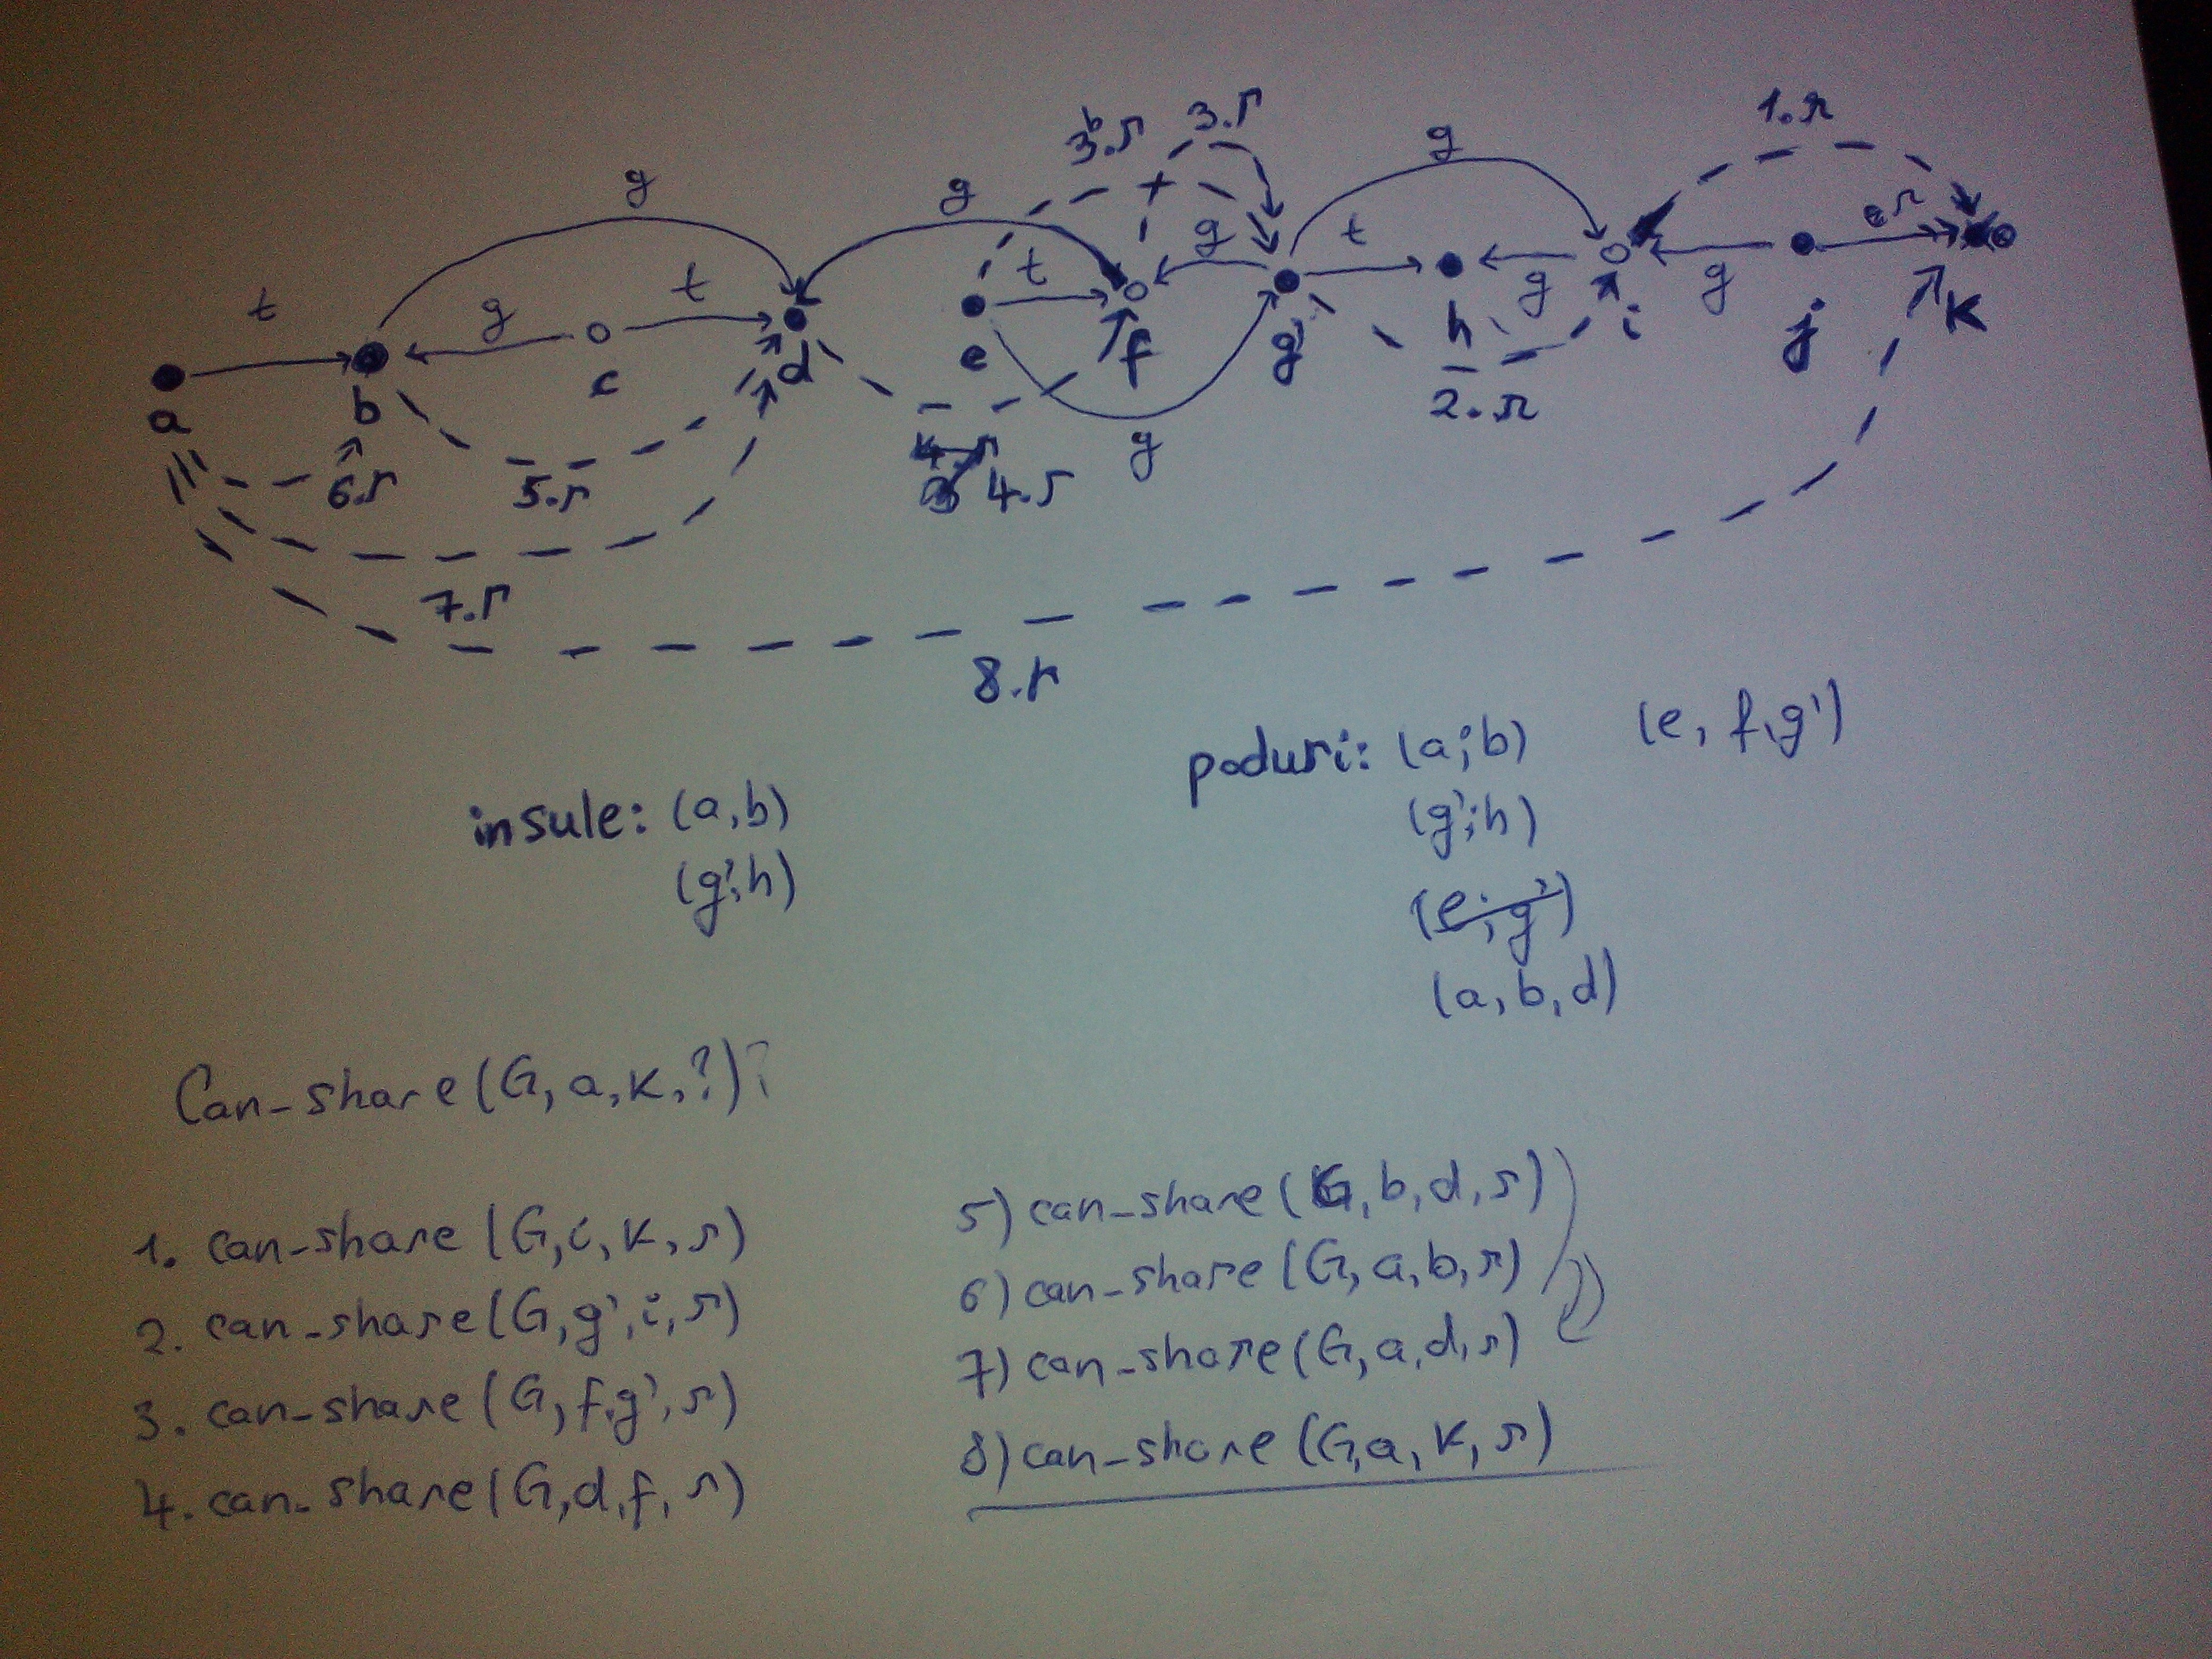 1.r
3.r
3b.r
g
g
g
e r
g
t
t
g
g
t
g
t
g
a
b
c
d
e
f
g'
h
i
j
k
2.r
g
4.r
4.r
6.r
5.r
7.r
8.r
insule: (a,b)
(g';h)
poduri: (a;b)
(e, f,g')
(g';h)
(e;g')
(a,b,d)
Can-share(G,a,k,?)?
1. can-share (G,i,k,r)
2. can-share(G,g',i,r)
3. can-share (G,f,g',r)
4. can-share(G,d,f,r)
5) can-share (G,b,d,r)
6) can-share (G,a,b,r)
7) can-share(G,a,d,r)
8) can-share (G,a,k,r)